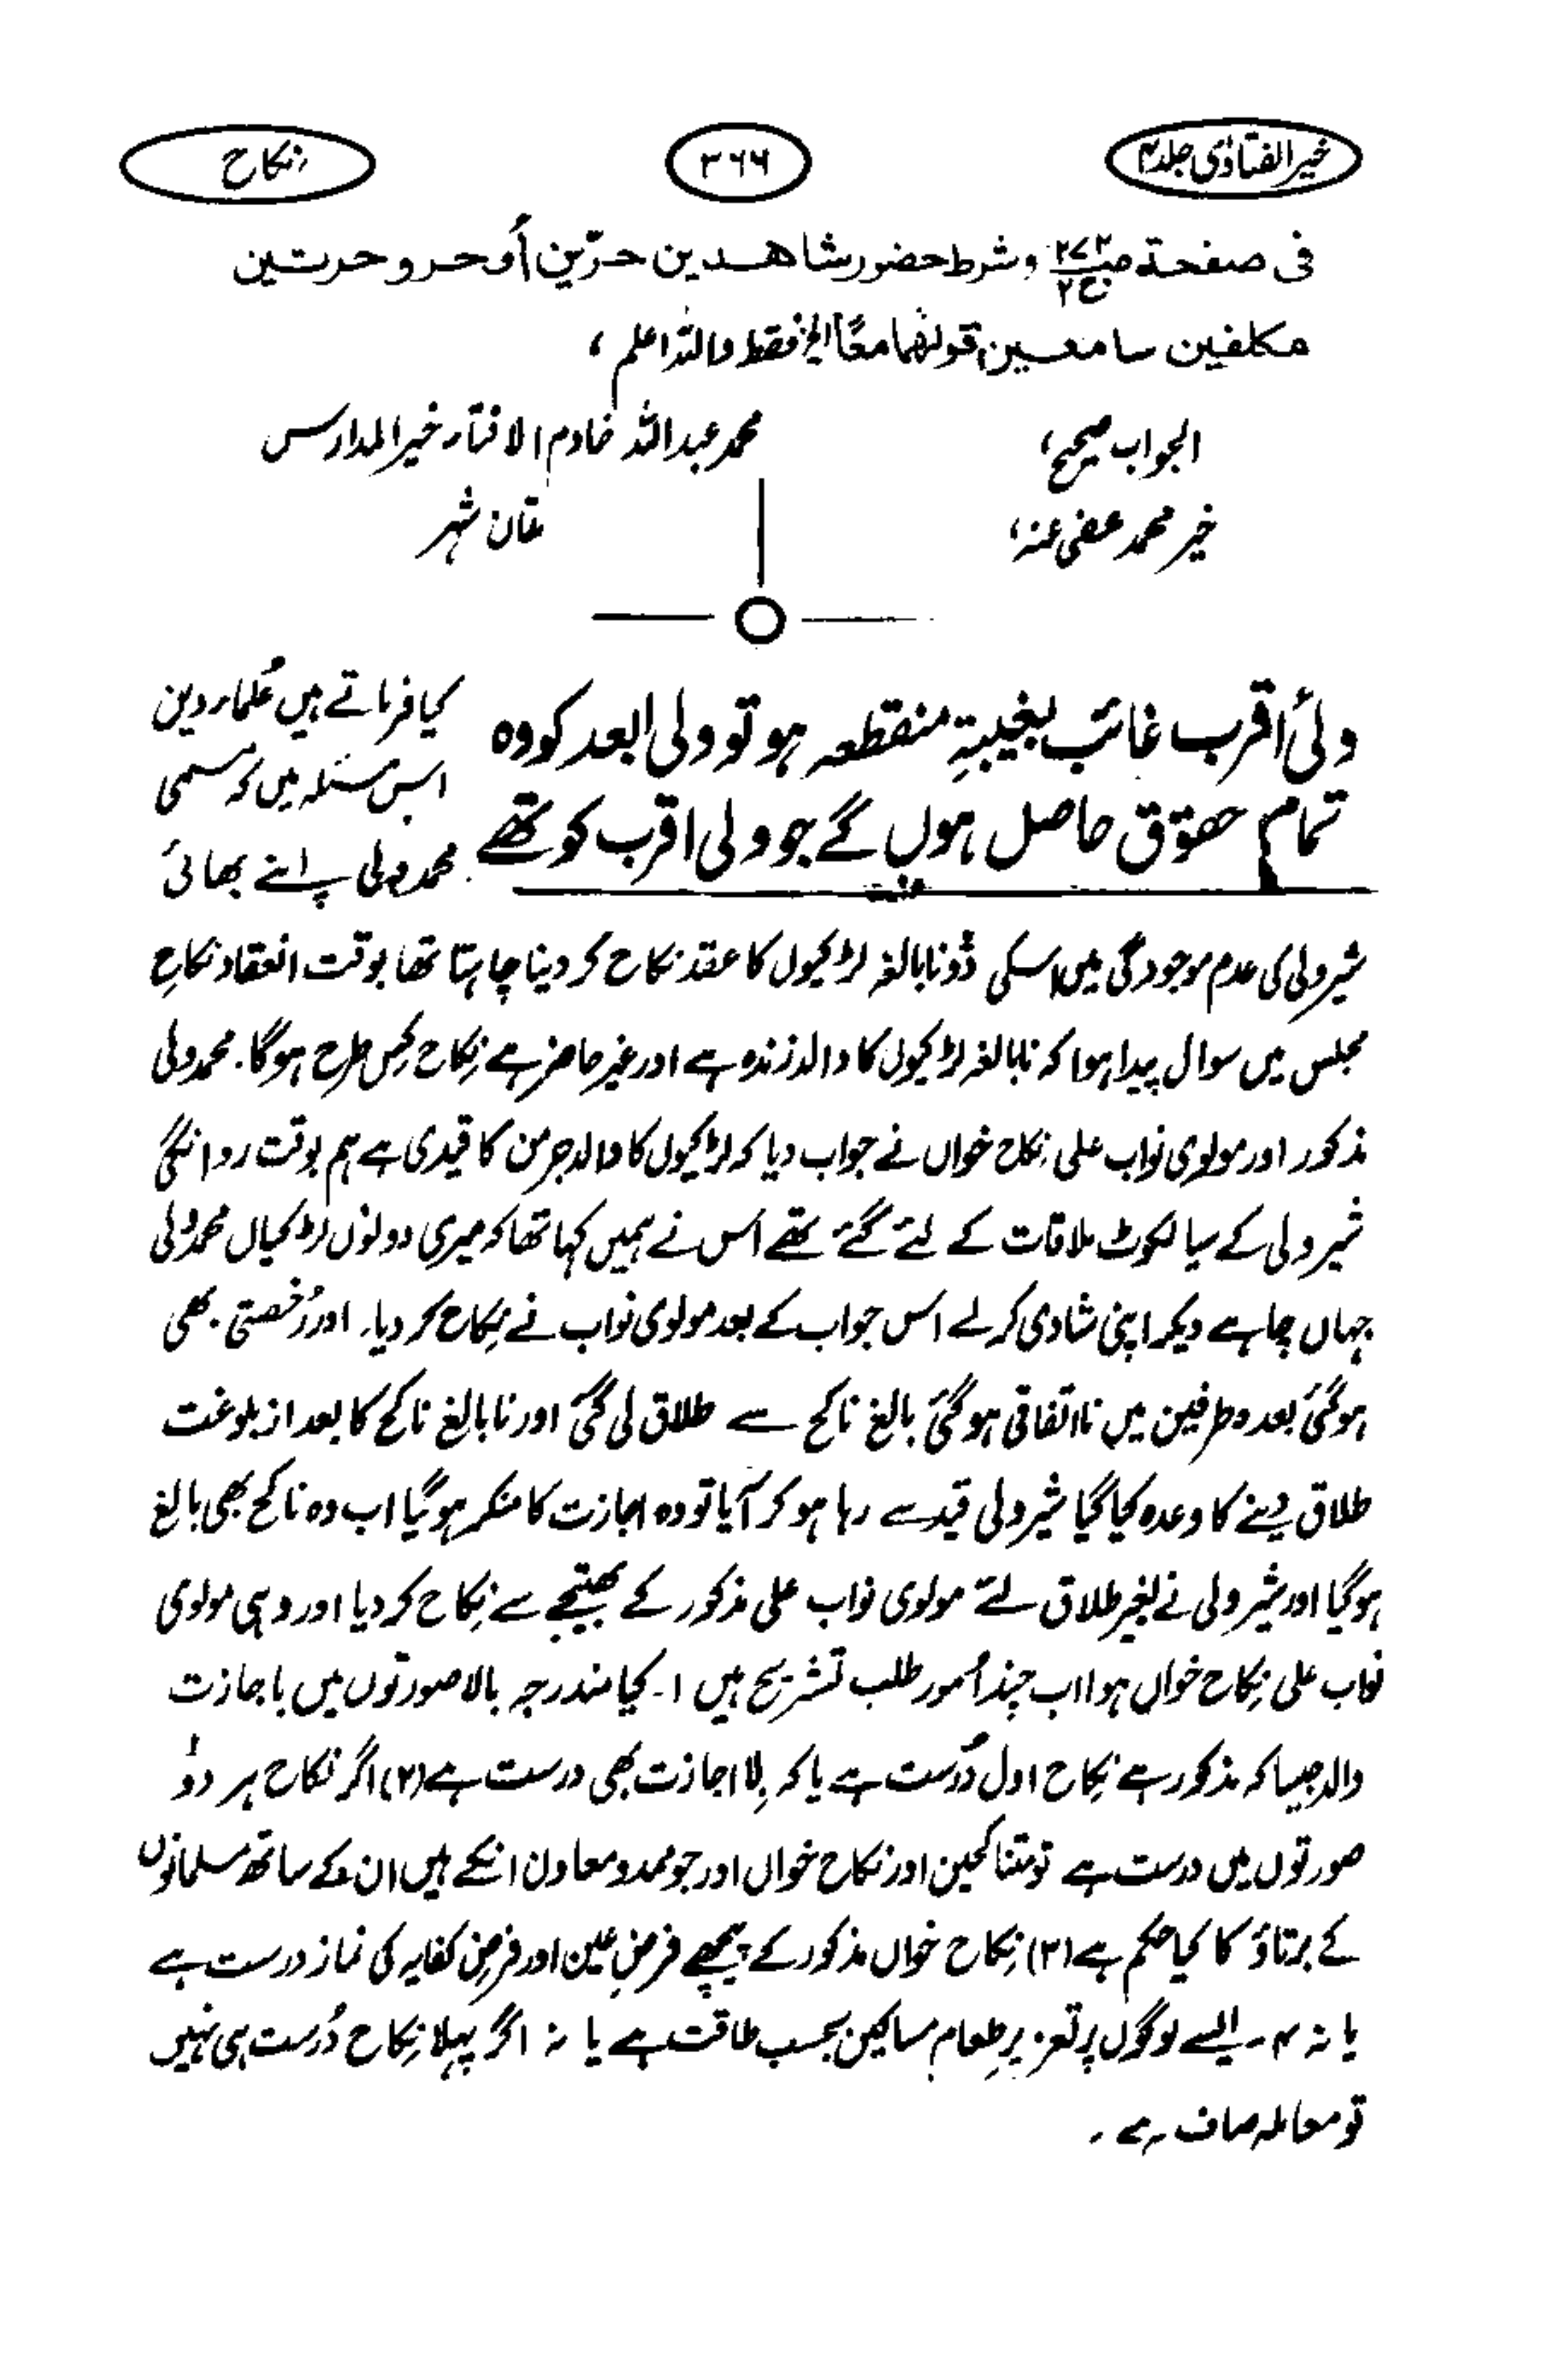 خیر الفتاوٰی جلد۴
۳۶۶
نکاح
فی صفحة ص۲۷۲ ج۲ وشرط حضور شاهدین حرّین أو حر و حرتین
مکلفین سامعین قولهما معًا الخ فقط واللہ اعلم،
الجواب صحیح،
محمد عبداللہ خادم الافتاء خیر المدارس
خیر محمد عفی عنہ،
ملتان شہر
ولیٔ اقرب غائب بغیبۃِ منقطعہ ہو تو ولی ابعد کو وہ
تمام حقوق حاصل ہوں گے جو ولی اقرب کو تھے
کیا فرماتے ہیں عُلماء دین
اس مسئلہ میں کہ مسمی
محمد ولی اپنے بھائی
شیر ولی کی عدم موجودگی میں اسکی دُو نابالغہ لڑکیوں کا عقد نکاح کر دینا چاہتا تھا بوقت انعقاد نکاحِ
مجلس میں سوال پیدا ہوا کہ نابالغہ لڑکیوں کا والد زندہ ہے اور غیر حاضر ہے نِکاح کِس طرح ہوگا. محمد ولی
مذکور اور مولوی نواب علی نکاح خواں نے جواب دیا کہ لڑکیوں کا والد جرمن کا قیدی ہے ہم بوقت روانگی
شیر ولی کے سیالکوٹ ملاقات کے لئے گئے تھے اس نے ہمیں کہا تھا کہ میری دونوں لڑکیاں محمد ولی
جہاں چاہے دیکر اپنی شادی کر لے اس جواب کے بعد مولوی نواب نے نِکاح کر دیا. اور رُخصتی بھی
ہو گئی بعدہ طرفین میں نااتفاقی ہو گئی بالغ ناکح سے طلاق لی گئی اور نابالغ ناکح کا بعد از بلوغت
طلاق دینے کا وعدہ کیا گیا شیر ولی قید سے رہا ہو کر آیا تو وہ اجازت کا منکر ہو گیا اب وہ ناکح بھی بالغ
ہو گیا اور شیر ولی نے بغیر طلاق لئے مولوی نواب علی مذکور کے بھتیجے سے نِکاح کر دیا اور وہی مولوی
نواب علی نِکاح خواں ہوا اب چند اُمور طلب تشریح ہیں ۱۔ کیا مندرجہ بالا صورتوں میں باجازت
والد جیسا کہ مذکور ہے نِکاح اول دُرست ہے یا کہ بِلا اجازت بھی درست ہے (۲) اگر نکاح ہر دوْ
صورتوں میں درست ہے تو متناکحین اور نکاح خواں اور جو ممد و معاون انکے ہیں ان کے ساتھ مسلمانوں
کے برتاؤ کا کیا حکم ہے (۳) نِکاح خواں مذکور کے پیچھے فرضِ عین اور فرضِ کفایہ کی نماز درست ہے
یا نہ ۴۔ ایسے لوگوں پر تعزیرِ طعام مساکین بحسب طاقت ہے یا نہ اگر پہلا نِکاح دُرست ہی نہیں
تو معاملہ صاف ہے۔